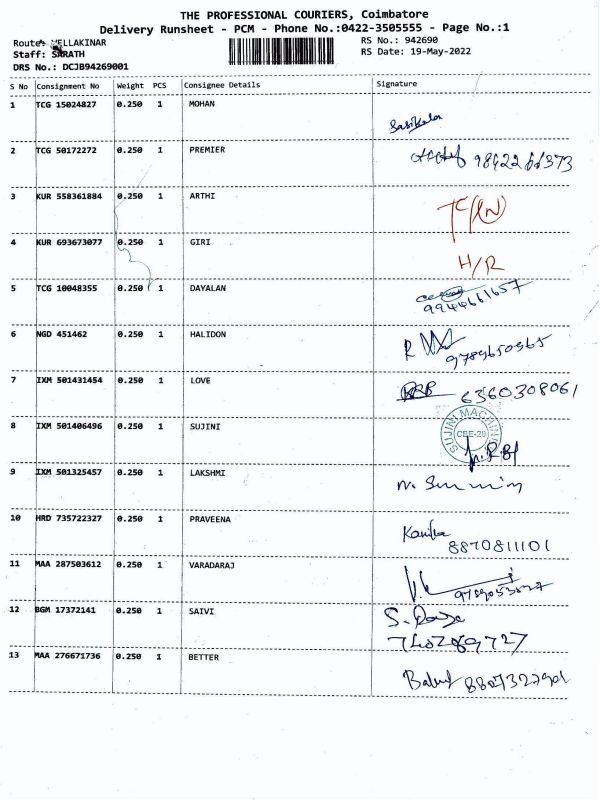 THE PROFESSIONAL COURIERS, Coimbatore
Delivery Runsheet - PCM - Phone No.:0422-3505555 - Page No.:1
Route: VELLAKINAR
RS No.: 942690
Staff: SARATH
RS Date: 19-May-2022
DRS No.: DCJB94269001
S No Consignment No Weight PCS Consignee Details Signature
1 TCG 15024827 0.250 1 MOHAN
Sasikala
2 TCG 50172272 0.250 1 PREMIER
3 KUR 558361884 0.250 1 ARTHI
4 KUR 693673077 0.250 1 GIRI
H/R
5 TCG 10048355 0.250 1 DAYALAN
9944661657
6 NGD 451462 0.250 1 HALIDON
9789650565
7 IXM 501431454 0.250 1 LOVE
6360308061
8 IXM 501406496 0.250 1 SUJINI
SUJINI MACHINE
CBE-29
9 IXM 501325457 0.250 1 LAKSHMI
10 HRD 735722327 0.250 1 PRAVEENA
8870811101
11 MAA 287503612 0.250 1 VARADARAJ
12 BGM 17372141 0.250 1 SAIVI
13 MAA 276671736 0.250 1 BETTER